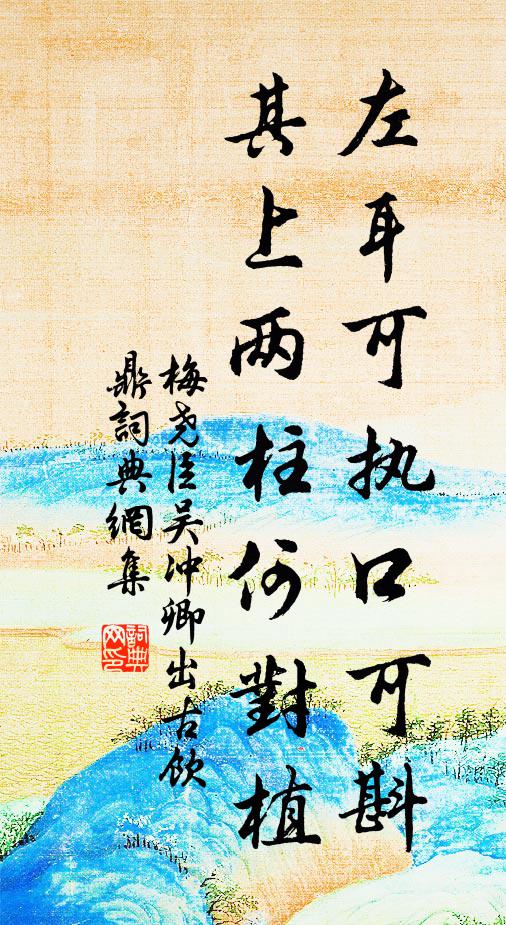 左耳可执口可斟
其上两柱何對植
梅尧臣吴冲卿出古饮
鼎詞典網集
詞典